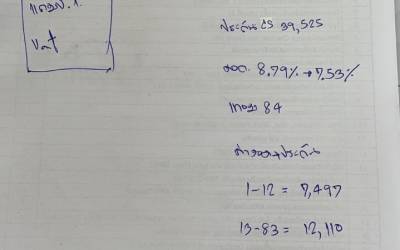 Vat
ประกัน CS 39,525
ลด 8.79% → 7.53%
เทอม 84
ค่างวด+ประกัน
1-12 = 7,497
13-83 = 12,110